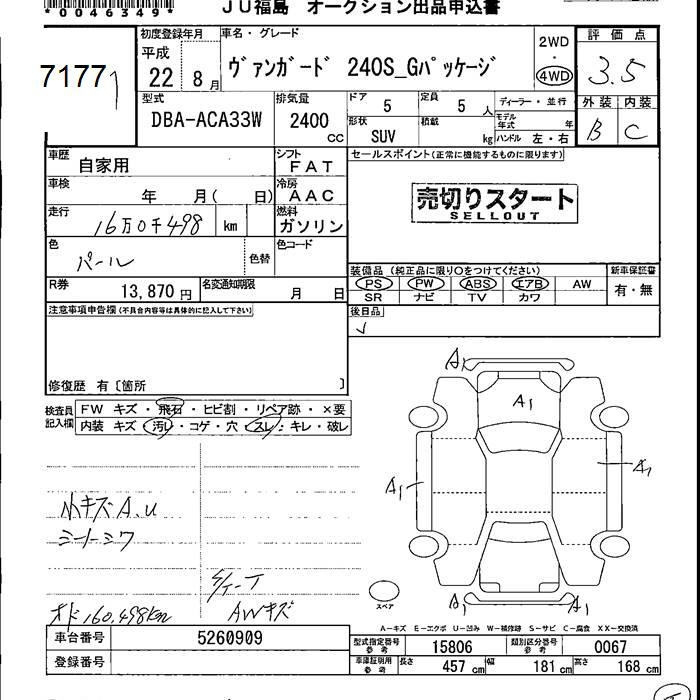 *0046349*
JU福島 オークション出品申込書
7177
初度登録年月
平成
22 8月
車名・グレード
ヴァンガード 240S_Gパッケージ
2WD
・
4WD
評価点
3.5
外装 内装
B C
型式
DBA-ACA33W
排気量
2400
cc
ドア
5
定員
5 人
形状
SUV
積載
kg
ディーラー・並行
モデル年式 年
ハンドル 左・右
車歴
自家用
シフト
FAT
セールスポイント(正常に機能するものに限ります)
売切りスタート
SELLOUT
車検
年 月( 日)
冷房
AAC
走行
16万0千498 km
燃料
ガソリン
色
パール
色替
色コード
R券
13,870 円
名変通知期限
月 日
装備品(純正品に限り○をつけてください)
PS PW ABS エアB AW
SR ナビ TV カワ
新車保証書
有・無
注意事項申告欄(不具合内容等は具体的に記入して下さい)
後日品
修復歴 有〔箇所 〕
検査員
記入欄
FW キズ・飛石・ヒビ割・リペア跡・×要
内装 キズ・汚レ・コゲ・穴・スレ・キレ・破レ
A1
A1
A1
A1
A1
A1
小キズA.U
シートシワ
AWキズ
オド160,498km
スペア
A-キズ E-エクボ U-凹み W-補修跡 S-サビ C-腐食 XX-交換済
車台番号
5260909
型式指定番号
参考
15806
類別区分番号
参考
0067
登録番号
車庫証明用
参考
長さ 457 cm
幅 181 cm
高さ 168 cm